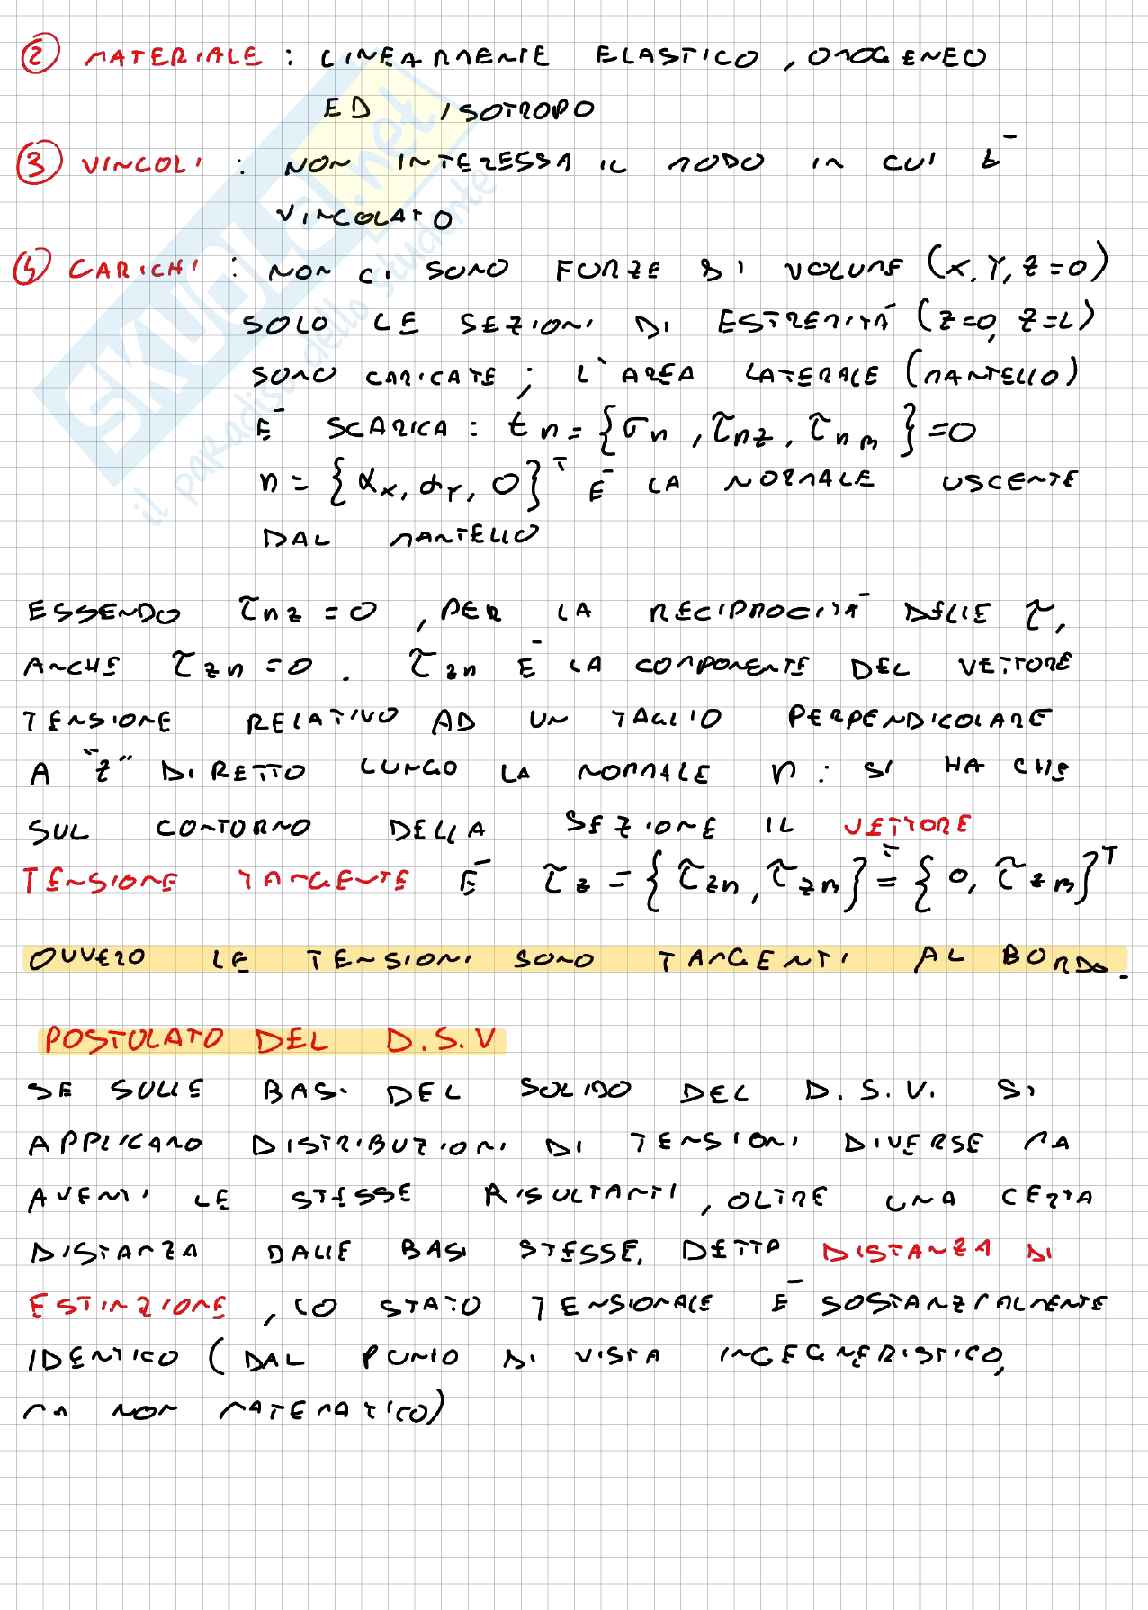 ② MATERIALE : LINEARMENTE ELASTICO, OMOGENEO
ED ISOTROPO
③ VINCOLI : NON INTERESSA IL MODO IN CUI È
VINCOLATO
④ CARICHI : NON CI SONO FORZE DI VOLUME (X, Y, Z=0)
SOLO LE SEZIONI DI ESTREMITÀ (Z=0, Z=L)
SONO CARICATE; L'AREA LATERALE (MANTELLO)
È SCARICA: tn={σn, τnz, τnm}=0
n={αx, αy, 0}ᵀ È LA NORMALE USCENTE
DAL MANTELLO
ESSENDO τnz=0, PER LA RECIPROCITÀ DELLE τ,
ANCHE τzn=0. τzn È LA COMPONENTE DEL VETTORE
TENSIONE RELATIVO AD UN TAGLIO PERPENDICOLARE
A "Z" DIRETTO LUNGO LA NORMALE n: SI HA CHE
SUL CONTORNO DELLA SEZIONE IL VETTORE
TENSIONE TANGENTE È τz={τzn, τzm}ᵀ={0, τzm}ᵀ
OVVERO LE TENSIONI SONO TANGENTI AL BORDO.
POSTULATO DEL D.S.V
SE SULLE BASI DEL SOLIDO DEL D.S.V. SI
APPLICANO DISTRIBUZIONI DI TENSIONI DIVERSE MA
AVENTI LE STESSE RISULTANTI, OLTRE UNA CERTA
DISTANZA DALLE BASI STESSE, DETTA DISTANZA DI
ESTINZIONE, LO STATO TENSIONALE È SOSTANZIALMENTE
IDENTICO (DAL PUNTO DI VISTA INGEGNERISTICO,
MA NON MATEMATICO)
SKUOLA.net
il paradiso dello studente